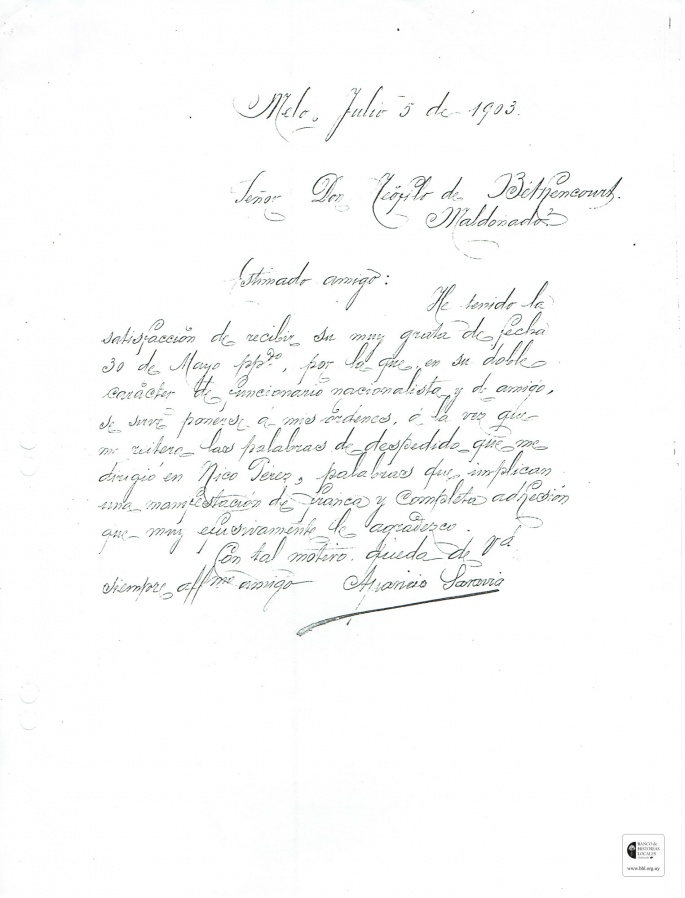 Melo, Julio 5 de 1903.
Señor Don Teófilo de Béthencourt.
Maldonado
Estimado amigo:
He tenido la
satisfacción de recibir su muy grata de fecha
30 de Mayo pp.do, por la que, en su doble
carácter de funcionario nacionalista, y de amigo,
se sirve ponerse á mis órdenes, á la vez que
me reitera las palabras de despedida que me
dirigió en Nico Perez, palabras que implican
una manifestación de franca y completa adhesión
que muy efusivamente le agradezco.
Con tal motivo, queda de Vd
siempre aff.mo amigo Aparicio Saravia
BANCO de
HISTORIAS
LOCALES
www.bhl.org.uy